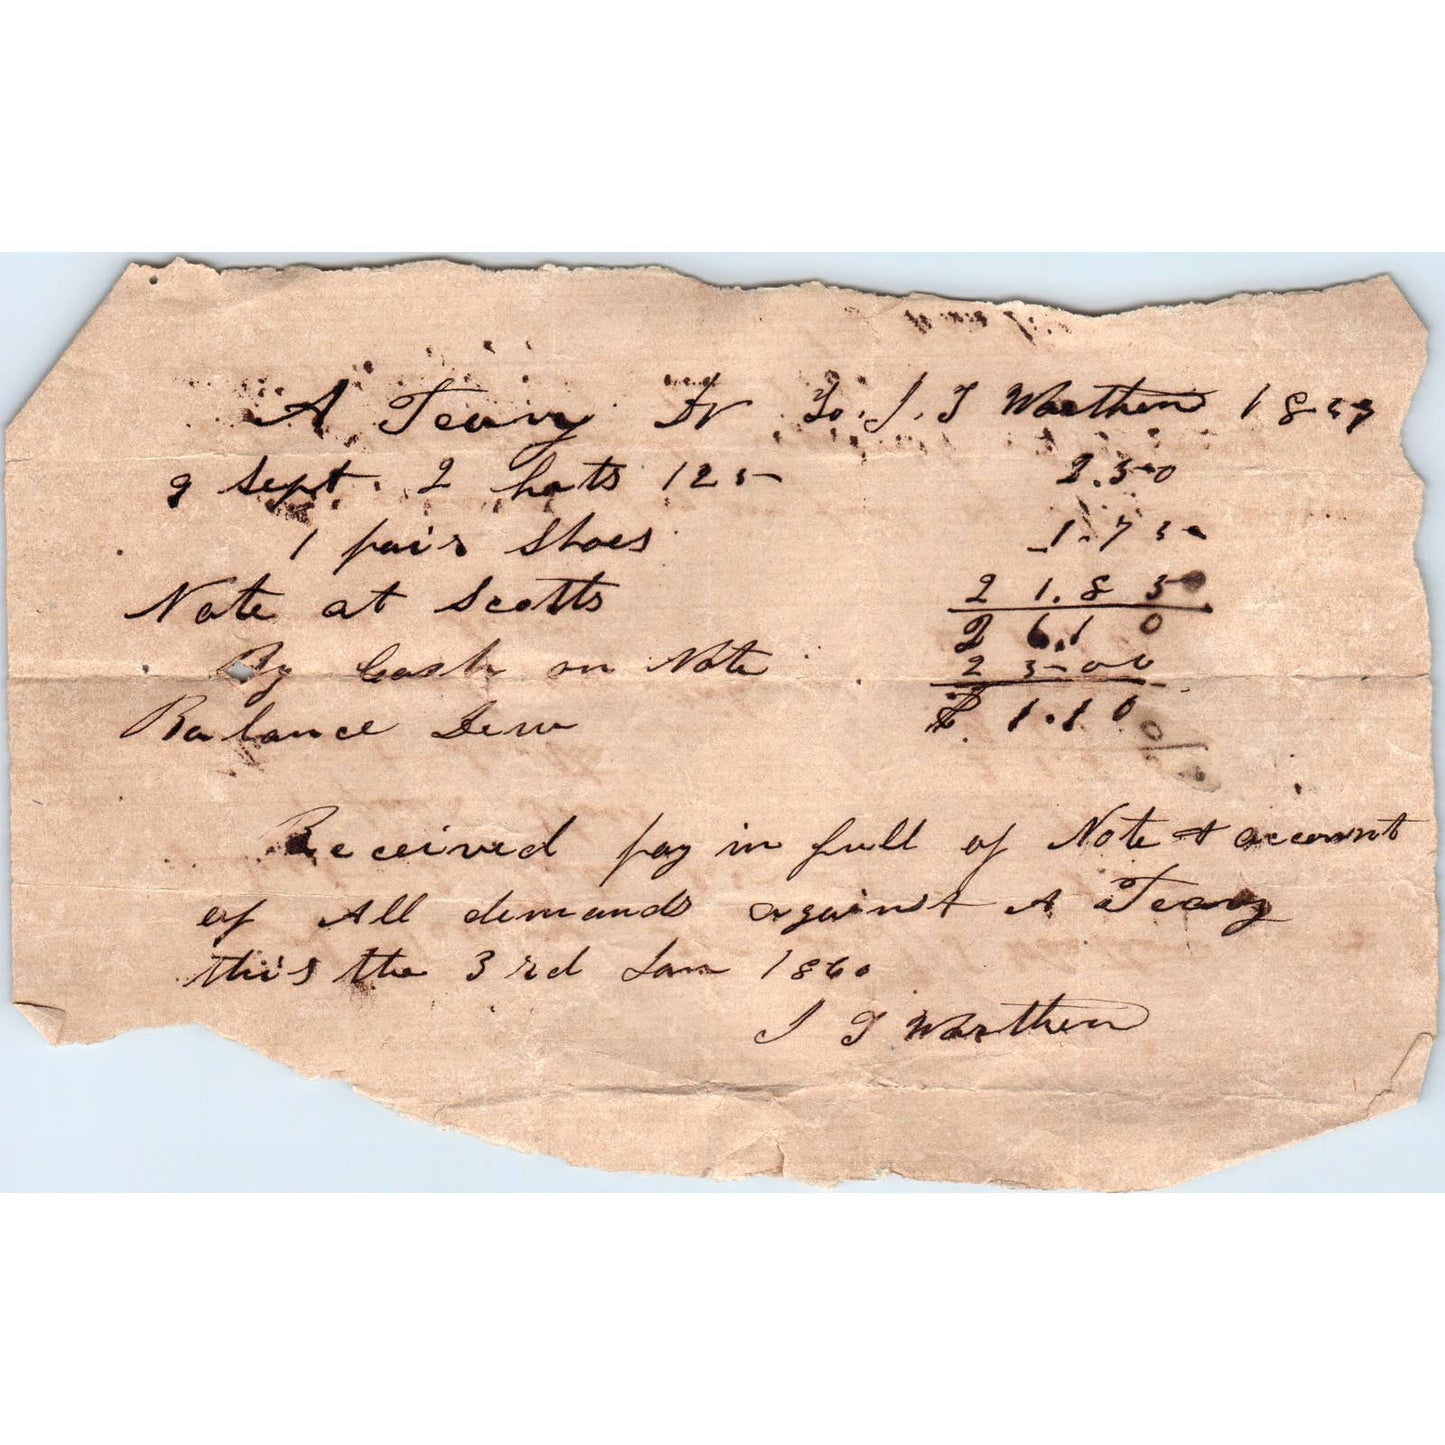 A Teavy Dr To. J. T Warthen 1859
9 Sept. 2 hats 125 2.50
1 pair Shoes 1.75
Note at Scotts 21.85
26.10
By Cash on Note 25.00
Balance Dew $ 1.10
Received pay in full of Note & account
of All demands against A Teavy
this the 3rd Jan 1860
J T Warthen